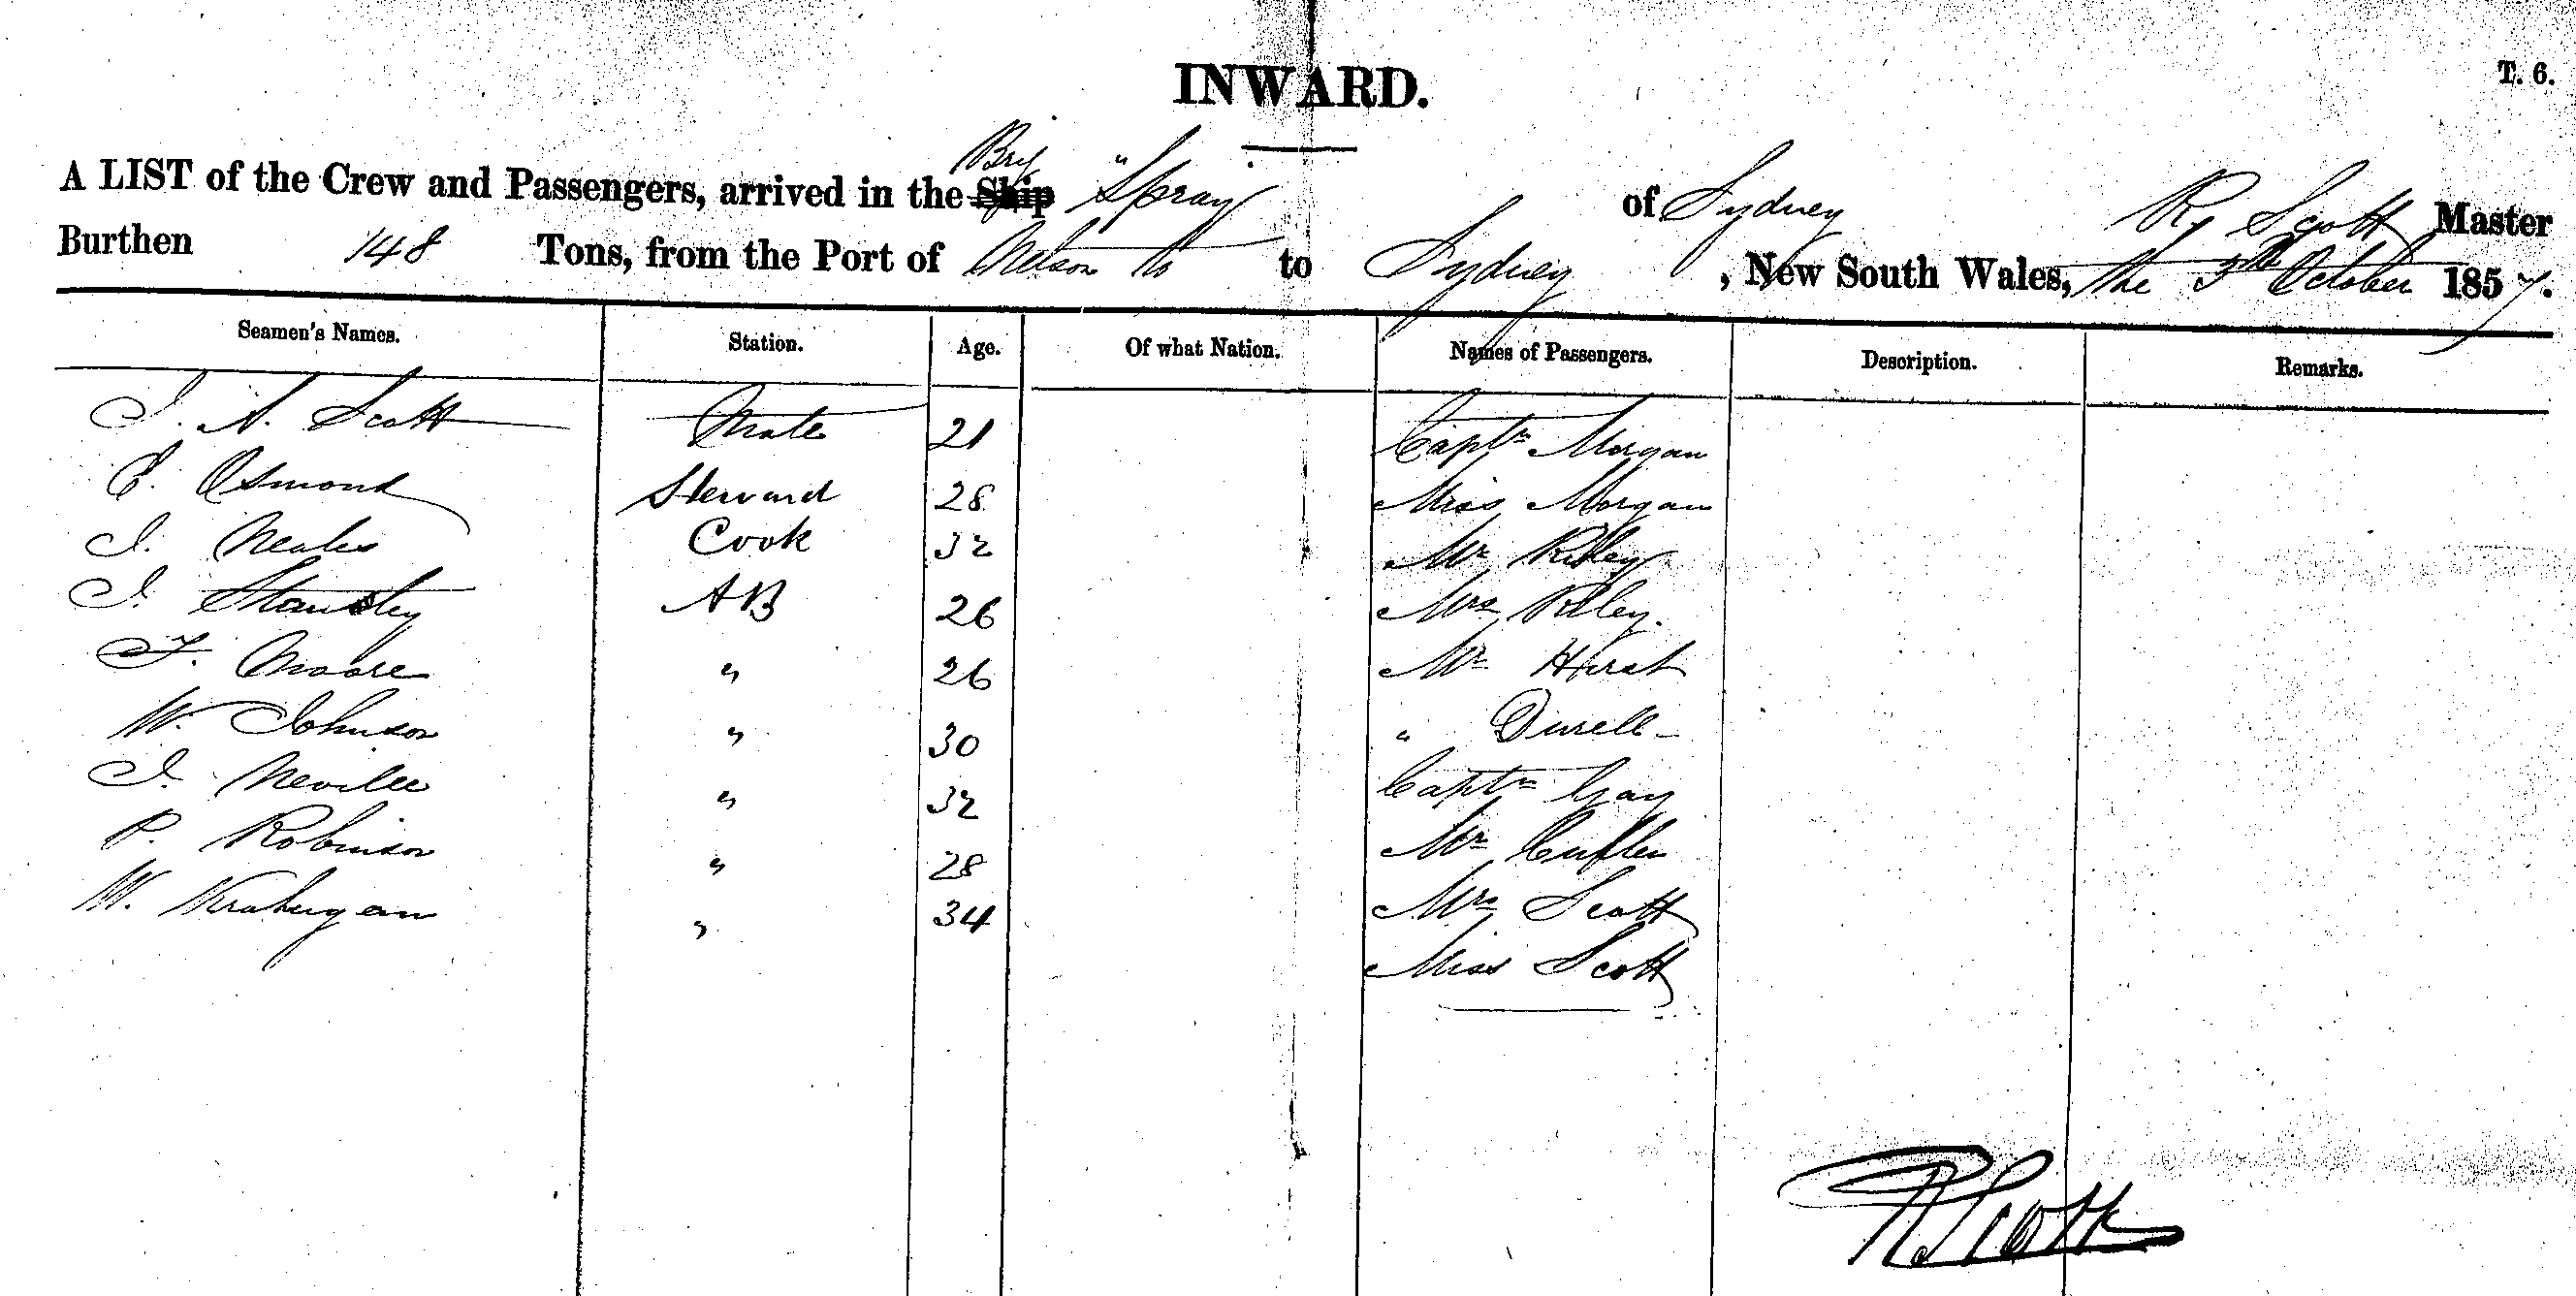 INWARD.
T. 6.
A LIST of the Crew and Passengers, arrived in the Ship Brig "Spray" of Sydney Rt Scott Master
Burthen 148 Tons, from the Port of Nelson to Sydney, New South Wales, the October 1857.
Seamen's Names. Station. Age. Of what Nation. Names of Passengers. Description. Remarks.
J. A. Scott Mate 21 Captn Morgan
C. Osmond Steward 28 Miss Morgan
J. Neales Cook 32 Mr Riley
J. AB 26 Mrs Riley.
F. Moore " 26 Mr Hurst
W. Johnson " 30 " Durell
J. Neville " 32 Captn Gay
P. Robinson " 28 Mr
W. " 34 Mrs Scott
Miss Scott
R Scott